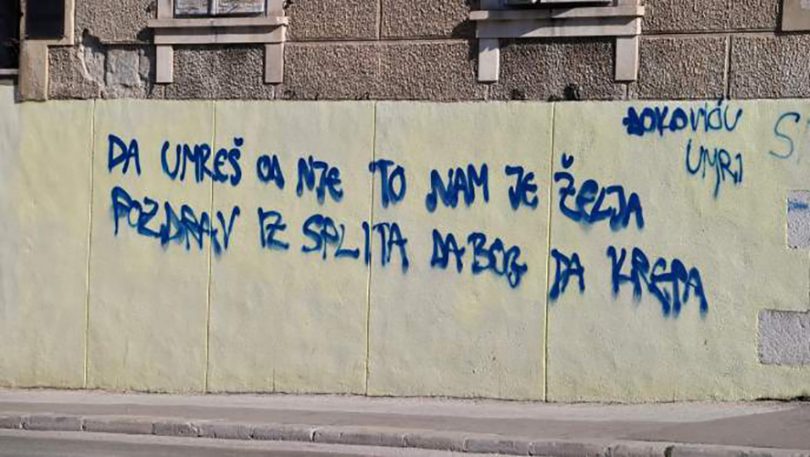 DA UMREŠ OD NJE TO NAM JE ŽELJA
POZDRAV IZ SPLITA DABOG DA KREPA
ĐOKOVIĆU
UMRI